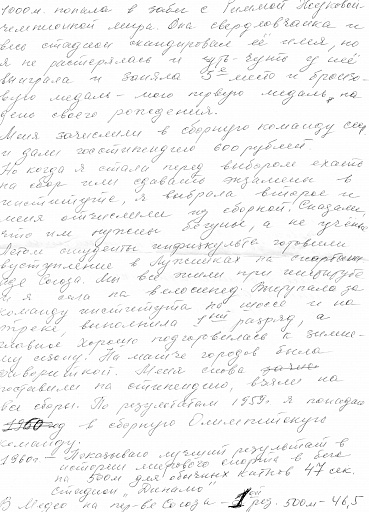 1000м. попала в забег с Риммой Жуковой
чемпионкой мира. Она свердловчанка и
весь стадион скандировал её имя, но
я не растерялась и чуть-чуть у неё
выиграла и заняла 3е место и бронзо-
вую медаль - мою первую медаль, на
день своего рождения.
Меня зачислили в сборную команду ссср
и дали гостипендию 600 рублей
Но когда я стала перед выбором ехать
на сбор или сдавать экзамены в
институте, я выбрала второе и
меня отчислили из сборной. Сказали,
что им нужны бегуны, а не учёные
Летом студенты инфизкульта готовили
выступление в Лужниках на спартаки-
аде Союза. Мы все жили при институте
и я села на велосипед. Выступала за
команду института по шоссе и на
треке выполнила разряд, а
главное хорошо подготовилась к зимне-
му сезону. На матче городов была
фавориткой. Меня снова
поставили на стипендию, взяли на
все сборы. По результатам 1959г. я попадаю
1960 в сборную Олимпийскую
команду.
1960г - Показываю лучший результат в
истории мирового спорта в беге
на 500м для обычных катков 47 сек.
Стадион "Динамо"
В Медео на пер-ве Союза - 1ой рез. 500м - 46,5